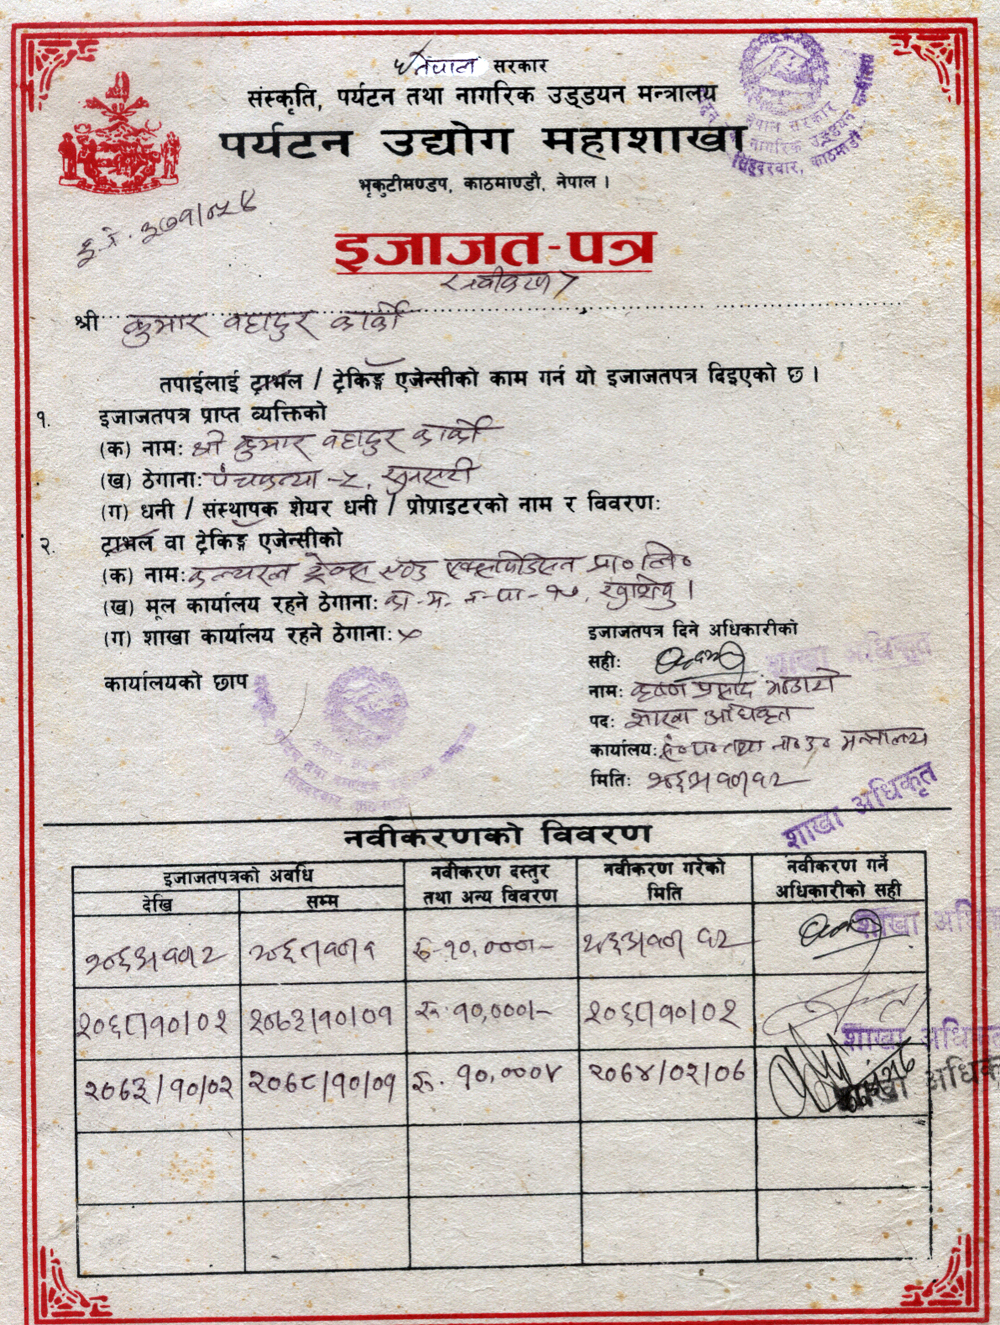 नेपाल सरकार
संस्कृति, पर्यटन तथा नागरिक उड्डयन मन्त्रालय
पर्यटन उद्योग महाशाखा
भृकुटीमण्डप, काठमाण्डौ, नेपाल ।
नेपाल सरकार
सिंहदरवार, काठमाडौं
इ.प्र. ३७१/०५८
इजाजत-पत्र
(नवीकरण)
श्री कुमार बहादुर कार्की
तपाईलाई ट्राभल / ट्रेकिङ्ग एजेन्सीको काम गर्न यो इजाजतपत्र दिइएको छ ।
१. इजाजतपत्र प्राप्त व्यक्तिको
(क) नाम: श्री कुमार बहादुर कार्की
(ख) ठेगाना: पंचकन्या -२, सुनसरी
(ग) धनी / संस्थापक शेयर धनी / प्रोप्राइटरको नाम र विवरण:
२. ट्राभल वा ट्रेकिङ्ग एजेन्सीको
(क) नाम: ट्रेक्स एण्ड एक्सपिडिसन प्रा० लि०
(ख) मूल कार्यालय रहने ठेगाना: का.म.न.पा-१७,
(ग) शाखा कार्यालय रहने ठेगाना: ×
कार्यालयको छाप
इजाजतपत्र दिने अधिकारीको
सही:
शाखा अधिकृत
नाम: कृष्ण प्रसाद भण्डारी
पद: शाखा अधिकृत
कार्यालय: सं० प० तथा ना० उ० मन्त्रालय
मिति: २०५८।१०।१२
शाखा अधिकृत
नवीकरणको विवरण
इजाजतपत्रको अवधि नवीकरण दस्तुर तथा अन्य विवरण नवीकरण गरेको मिति नवीकरण गर्ने अधिकारीको सही
देखि सम्म
रु. १०,०००।-
शाखा अधि
२०६८।१०।०२ २०७३।१०।०१ रु. १०,०००।- २०६८।१०।०२
शाखा अधि
२०७३/१०/०२ २०७८/१०/०१ रु. १०,०००४ २०७४/०२/०७
शाखा अधिक